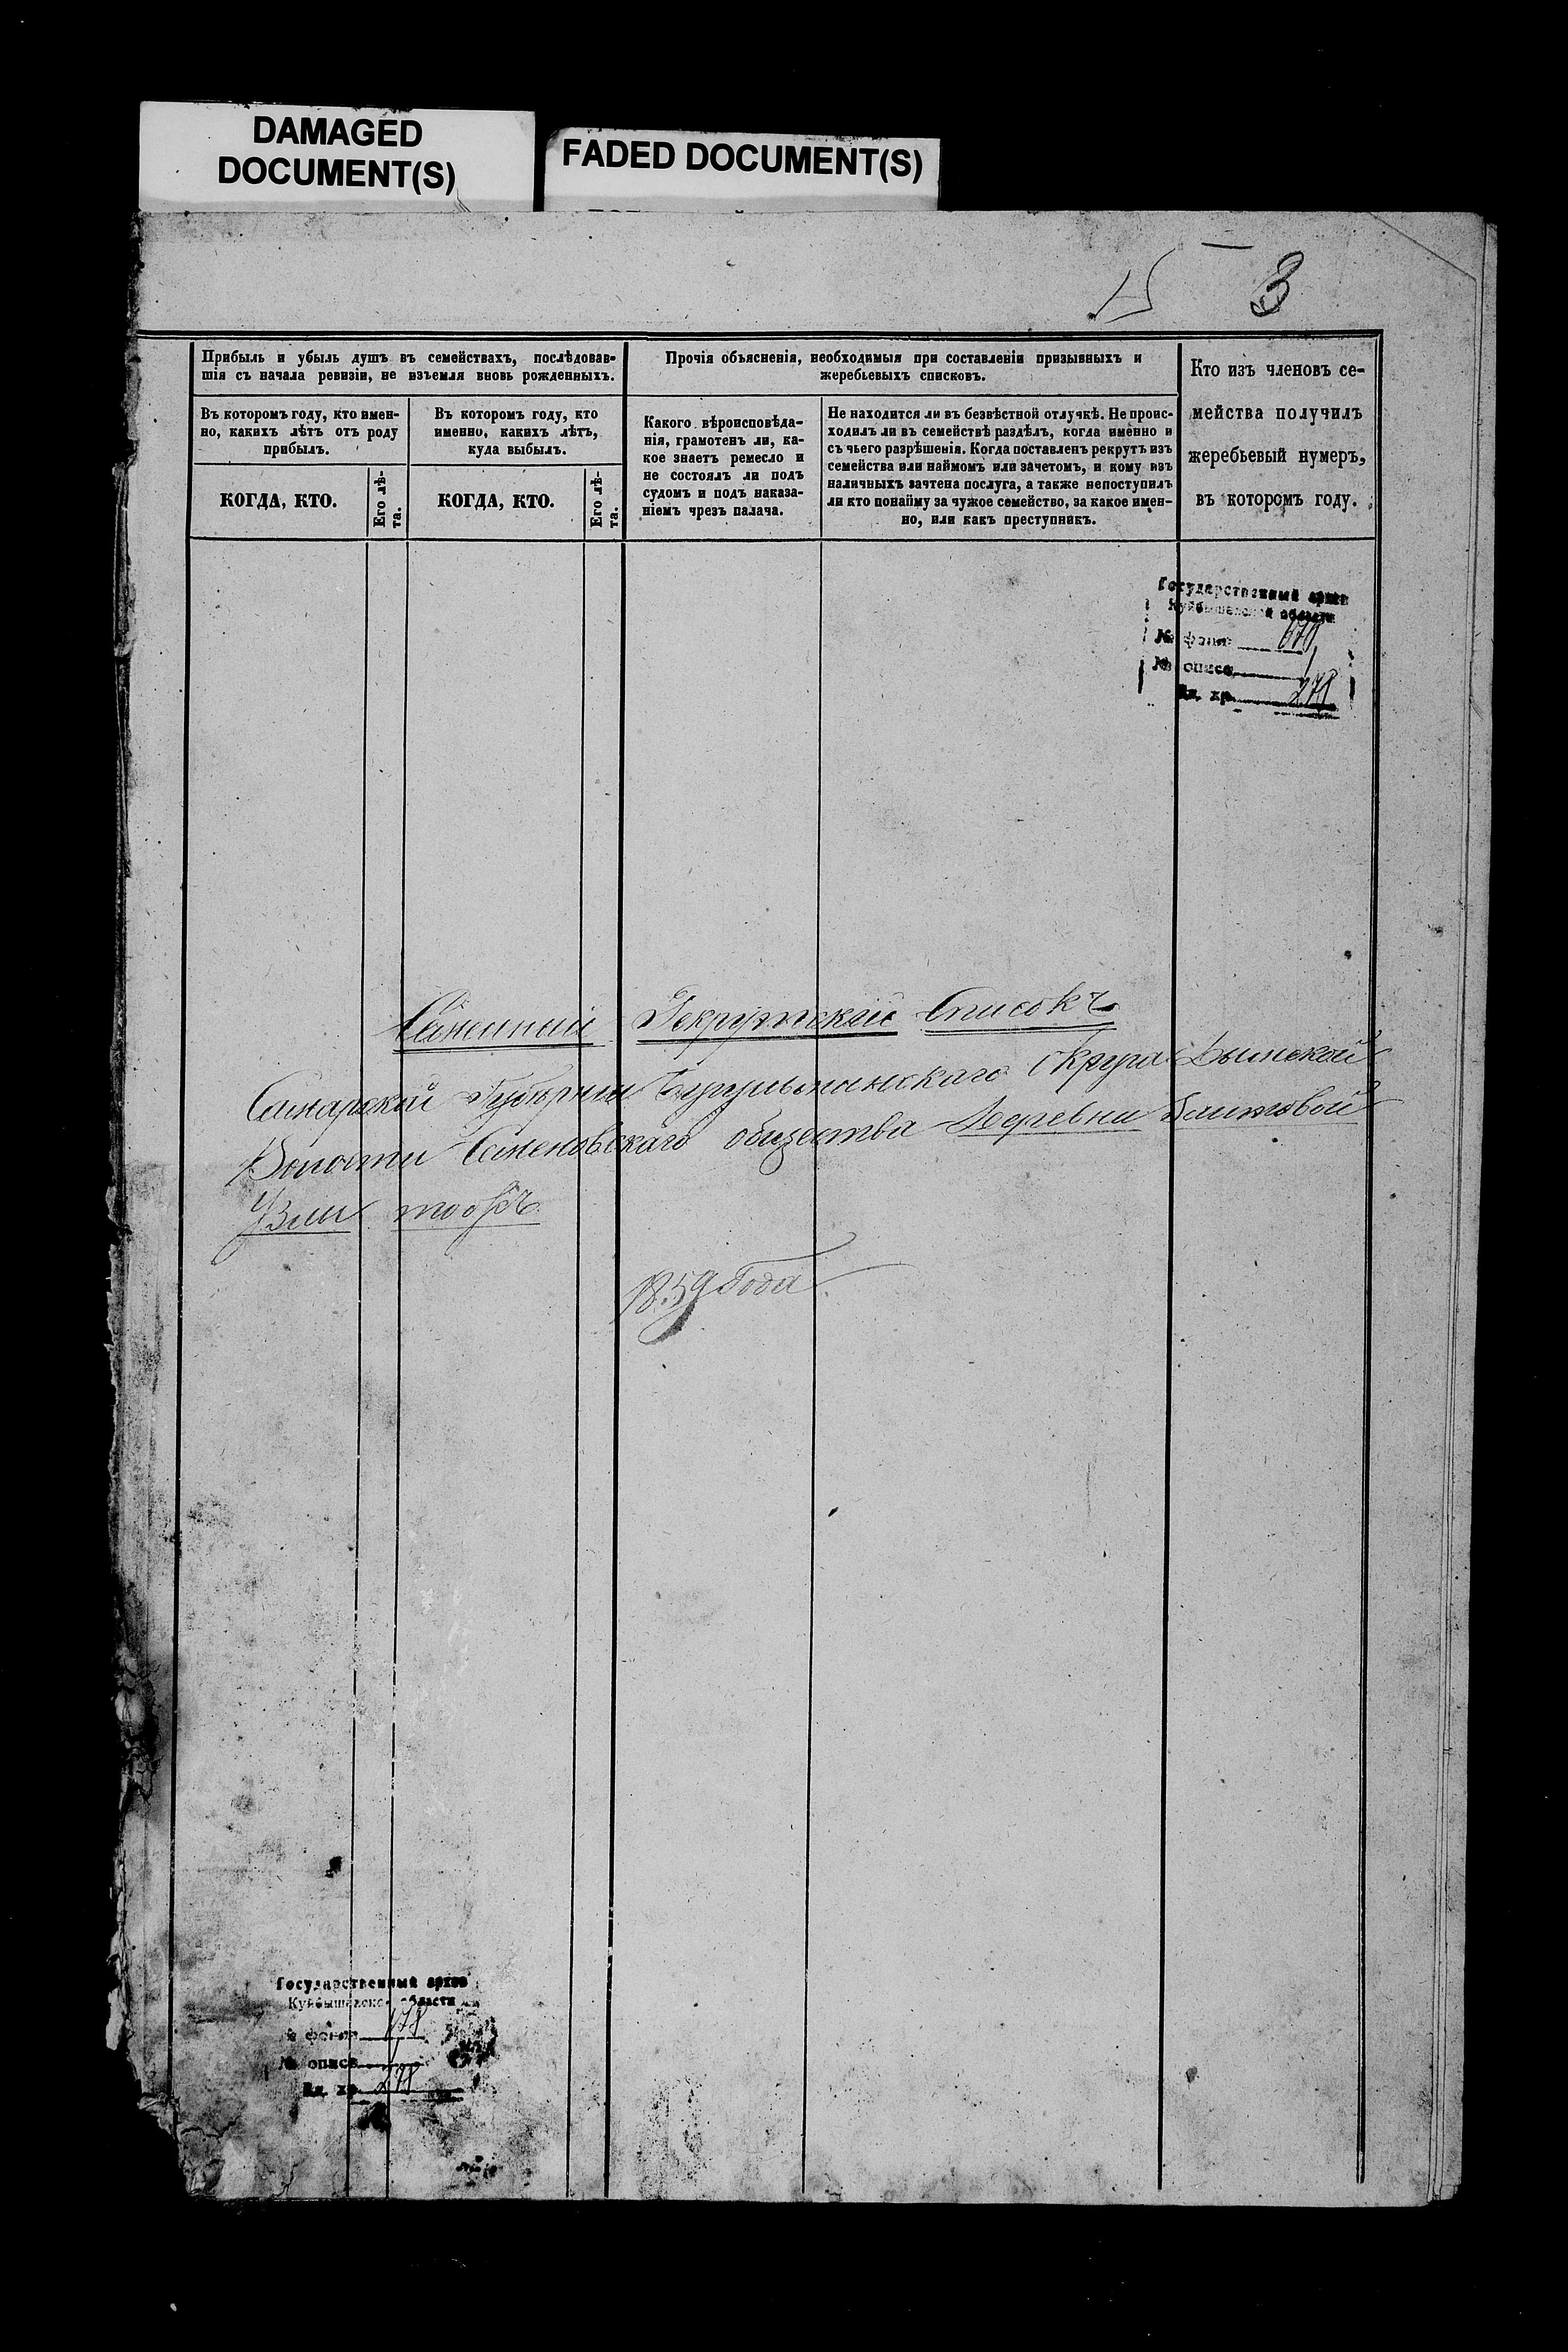 DAMAGED
DOCUMENT(S)
FADED DOCUMENT(S)
3
Прибыль и убыль душъ въ семействахъ, послѣдовав-
шія съ начала ревизіи, не изъемля вновь рожденныхъ.
Въ которомъ году, кто имен-
но, какихъ лѣтъ отъ роду
прибылъ.
КОГДА, КТО.
Его лѣ-
та.
Въ которомъ году, кто
именно, какихъ лѣтъ,
куда выбылъ.
КОГДА, КТО.
Его лѣ-
та.
Прочія объясненія, необходимыя при составленіи призывныхъ и
жеребьевыхъ списковъ.
Какого вѣроисповѣда-
нія, грамотенъ ли, ка-
кое знаетъ ремесло и
не состоялъ ли подъ
судомъ и подъ наказа-
ніемъ чрезъ палача.
Не находится ли въ безвѣстной отлучкѣ. Не проис-
ходилъ ли въ семействѣ раздѣлъ, когда именно и
съ чьего разрѣшенія. Когда поставленъ рекрутъ изъ
семейства или наймомъ или зачетомъ, и кому изъ
наличныхъ зачтена послуга, а также непоступилъ
ли кто понайму за чужое семейство, за какое имен-
но, или какъ преступникъ.
Кто изъ членовъ се-
мейства получилъ
жеребьевый нумеръ,
въ которомъ году.
Государственный архив
Куйбышевской области
№ фонд 678
№ описи 1
Ед. хр. 278
Семейный Рекрутской Списокъ
Самарской Губерніи Бугульминскаго Округа Дымской
Волости Семеновскаго общества Деревни
1859 Года
Государственный архив
Куйбышевской области
№ фонд 678
№ описи 1
Ед. хр. 278